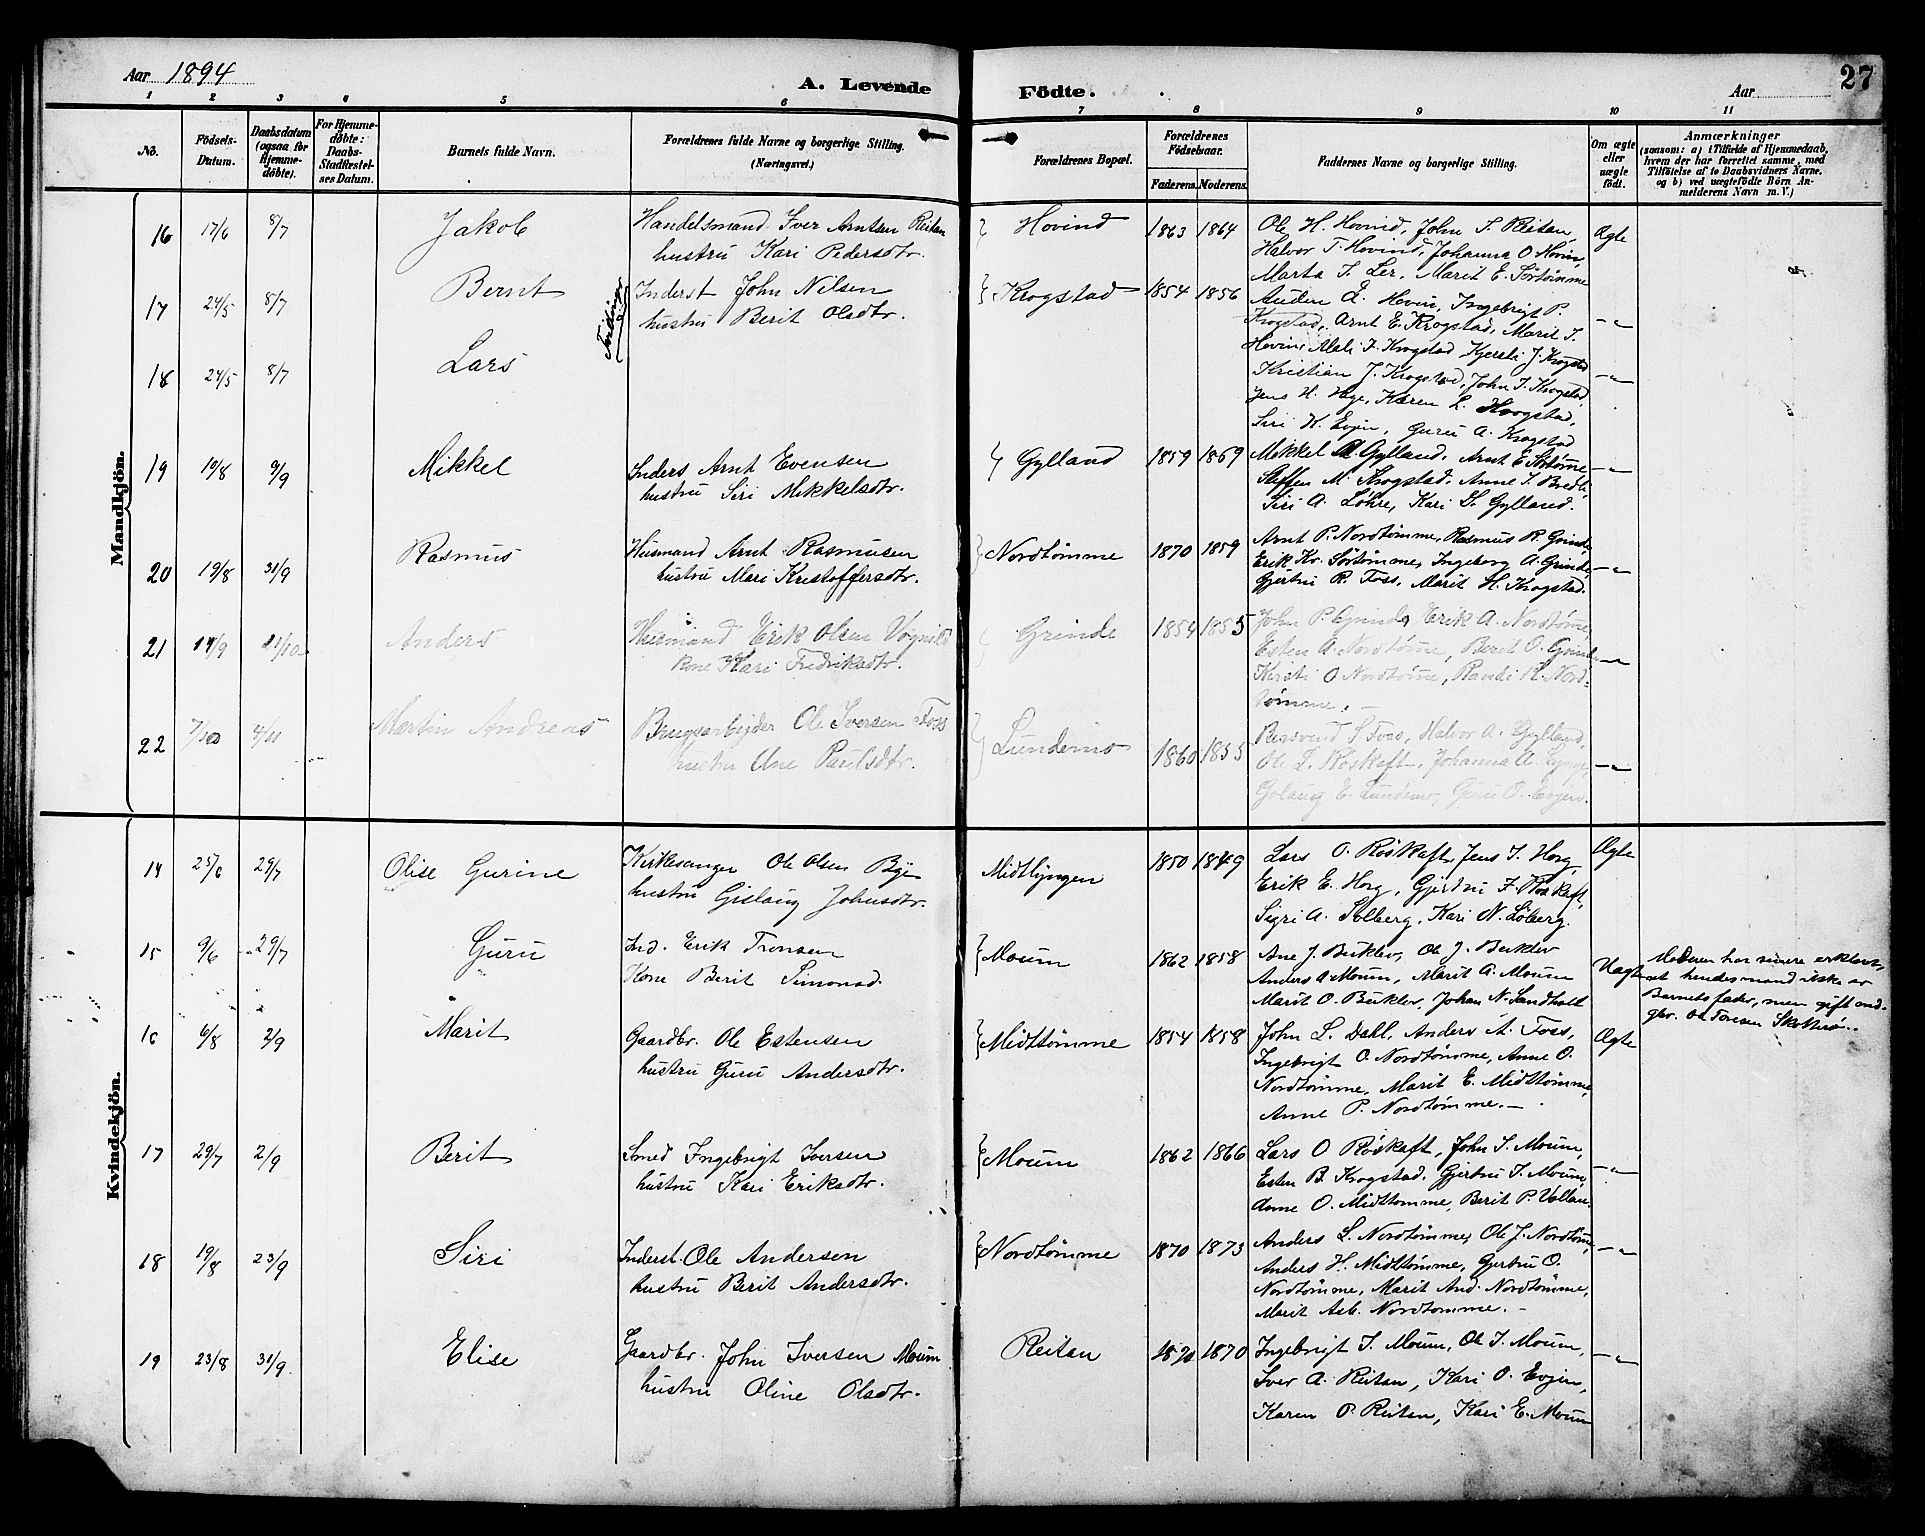 Aar 1894
A. Levende
Födte.
Aar
27
1 2 3 4 5 6 7 8 9 10 11
No.
Födsels-Datum.
Daabsdatum (ogsaa for Hjemmedöbte).
For Hjemmedöbte: Daabs-Stadfæstelses Datum.
Barnets fulde Navn.
Forældrenes fulde Navne og borgerlige Stilling. (Næringsvei.)
Forældrenes Bopæl.
Forældrenes Födselsaar.
Faderens. Moderens.
Faddernes Navne og borgerlige Stilling.
Om ægte eller uægte födt.
Anmærkninger
(saasom: a) i Tilfælde af Hjemmedaab, hvem der har forrettet samme, med Tilföielse af to Daabsvidners Navne, og b) ved uægtefödte Börn Anmelderens Navn m. V.)
Mandkjön.
16 17/6 8/7 Jakob
Handelsmand Iver Arntsen Reitan
hustru Kari Pedersdtr.
Hovind 1863 1864
Ole H. Hovind, John S. Reitan,
Halvor T. Hovind, Johanna O. Hovin,
Marta I. Ler, Marit E. Sörtömme
Ægte
17 24/5 8/7 Bernt
Inderst John Nilsen
hustru Berit Olsdtr.
Krogstad 1854 1856
Hovin, Ingebrigt P.
Krogstad, Arnt E. Krogstad, Marit I.
Hovin, F. Krogstad Kjersti J. Krogstad
—"—
18 24/5 8/7 Lars
Kristian J. Krogstad, John I. Krogstad,
Jens H. Hage, Karen L. Krogstad,
Siri H. Evjen, Guru A. Krogstad
—"—
19 19/8 9/9 Mikkel
Inders Arnt Evensen
hustru Siri Mikkelsdtr.
Gylland 1859 1869
Mikkel A Gylland, Arnt E. Sörtömme
Steffen M. Krogstad, Anne I. Bredli,
Siri A. Löhre, Kari St. Gylland.
—"—
20 19/8 31/9 Rasmus
Husmand Arnt Rasmusen
hustru Mari Kristoffersdtr.
Nordtömme 1870 1859
Arnt P. Nordtömme, Rasmus R. Grinde,
Erik Kr. Sörtömme, Ingeborg A. Grinde,
Gjertru R. Foss, Marit H. Krogstad.
—"—
21 14/9 21/10 Anders
Husmand Erik Olsen Vognild
Kone Kari Fredriksdtr.
Grinde 1854 1855
John P. Grinde, Erik A. Nordtömme,
Esten A. Nordtömme, Berit O. Grinde
Kirsti O Nordtömme, Randi R. Nord-
tömme.
—"—
22 7/10 4/11 Martin Andreas
Brugsarbeider Ole Iversen Foss
hustru Ane Paulsdtr.
Lundemo 1860 1855
Bersvend S. Foss, Halvor A. Gylland,
Ole L. Röskaft, Johanna A.
Golaug E. Lundemo, Guru O. Evjen.
—"—
Kvindekjön.
14 25/6 29/7 Olise Gurine
Kirkesanger Ole Olsen Bye
hustru Gislaug Johnsdtr.
Midtlyngen 1850 1849
Lars O. Röskaft, Jens I. Horg,
Erik E. Horg, Gjertru F. Röskaft,
Sigri A. Solberg, Kari N. Löberg.
Ægte
15 9/6 29/7 Guru
Ind. Erik Tronsen
Kone Berit Simonsd.
Moum 1862 1858
Ane J. Buklev, Ole J. Buklev
Anders A. Moum, Marit A. Moum
Marit O. Buklev, Johan N. Sandhall
Uægte
Moderen har senere erklært,
at hendes mand ikke er
Barnets fader, men gift
gbr. Ole Foresen
16 6/8 2/9 Marit
Gaardbr. Ole Estensen
hustru Guru Andersdtr.
Midttömme 1854 1858
John L. Dahl, Anders A. Foss,
Ingebrigt O. Nordtömme, Anne O.
Nordtömme, Marit E. Midttömme,
Anne P. Nordtömme.
Ægte
17 29/7 2/9 Berit
Smed Ingebrigt Iversen
hustru Kari Eriksdtr.
Moum 1862 1866
Lars O Röskaft, John I. Moum,
Esten B. Krogstad, Gjertru I. Moum,
Anne O. Midttömme, Berit P. Vollan
—"—
18 19/8 23/9 Siri
Inderst Ole Andersen
hustru Berit Andersdtr.
Nordtömme 1870 1873
Anders L. Nordtömme, Ole J. Nordtömme,
Anders H. Midttömme, Gjertru O.
Nordtömme, Marit And. Nordtömme,
Marit Asb. Nordtömme.
—"—
19 23/8 31/9 Elise
Gaardbr. John Iversen Moum
hustru Oline Olsdtr.
Reitan 1870 1870
Ingebrigt I. Moum, Ole I. Moum,
Iver A. Reitan, Kari O. Evjen,
Karen P. Reitan, Kari E. Moum
—"—